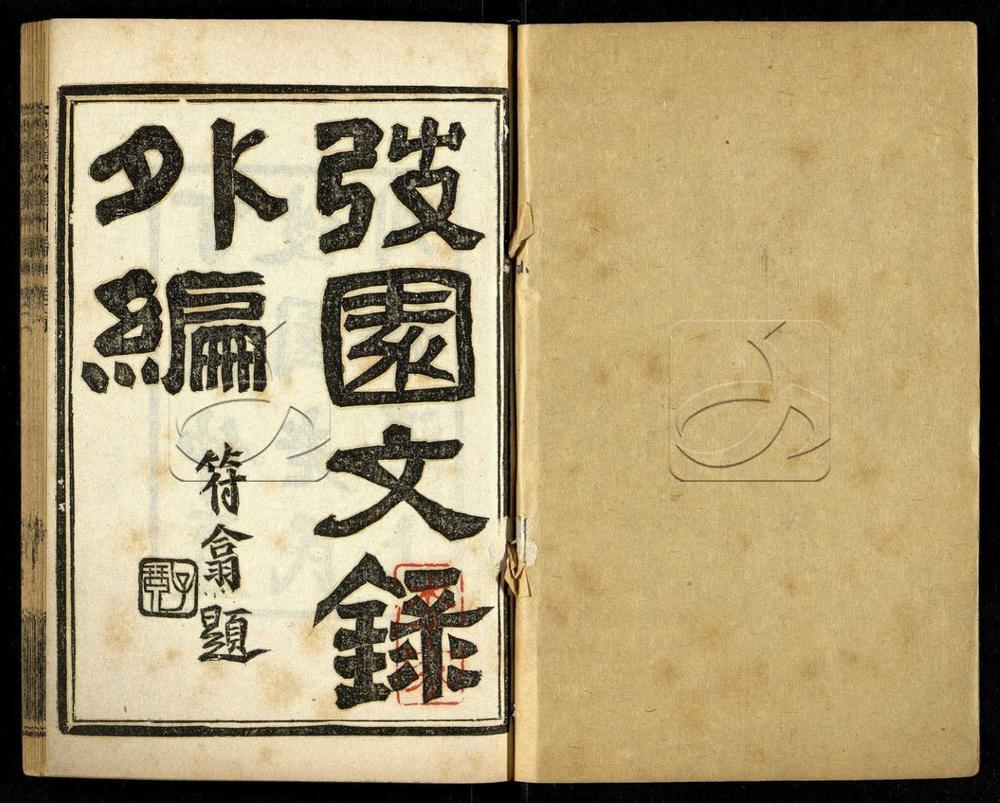 弢園文録
外編
符翕題